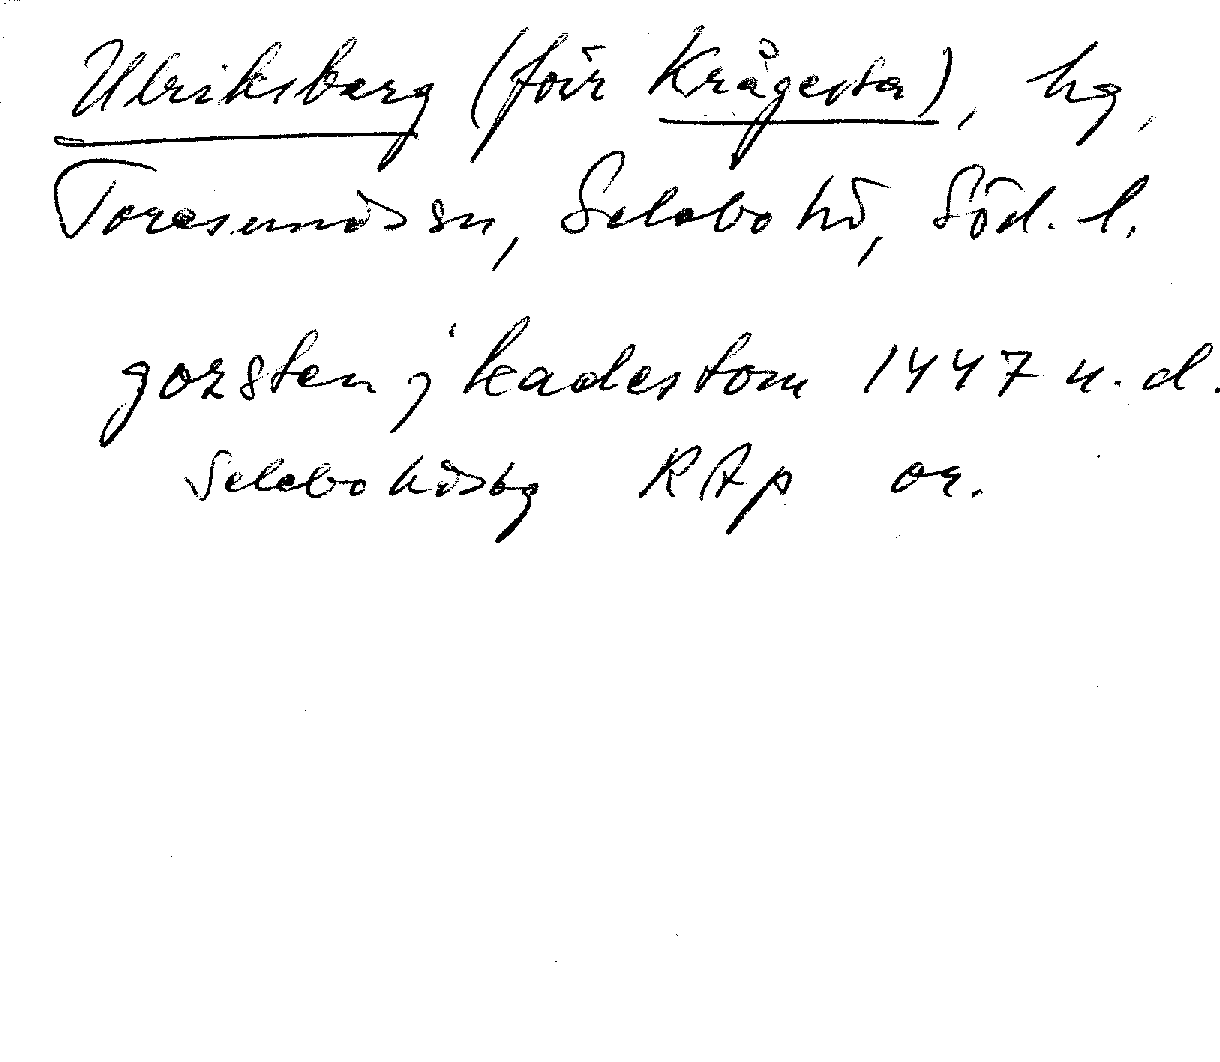 Ulriksberg (förr Krågesta), hg,
Toresunds sn, Selebo hd, Söd. l.
gorsten j kadestom 1447 u.d.
Selebo hdsbg RAp or.